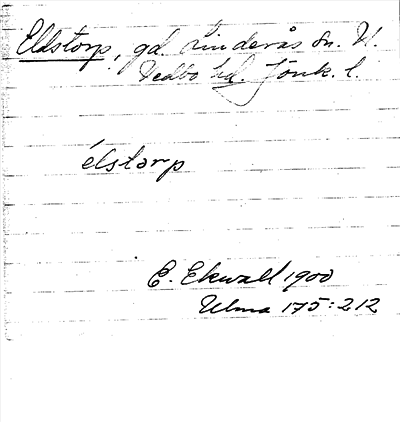 Eldstorp, gd. Linderås sn. N.
Vedbo hd. Jönk. l.
élstårp
E. Ekwall 1900
Ulma 175:212